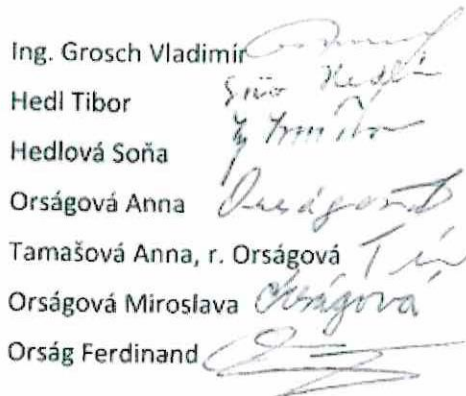 Ing. Grosch Vladimír
Hedl Tibor
Hedlová Soňa
Orságová Anna Orságová
Tamašová Anna, r. Orságová
Orságová Miroslava Orságová
Orság Ferdinand